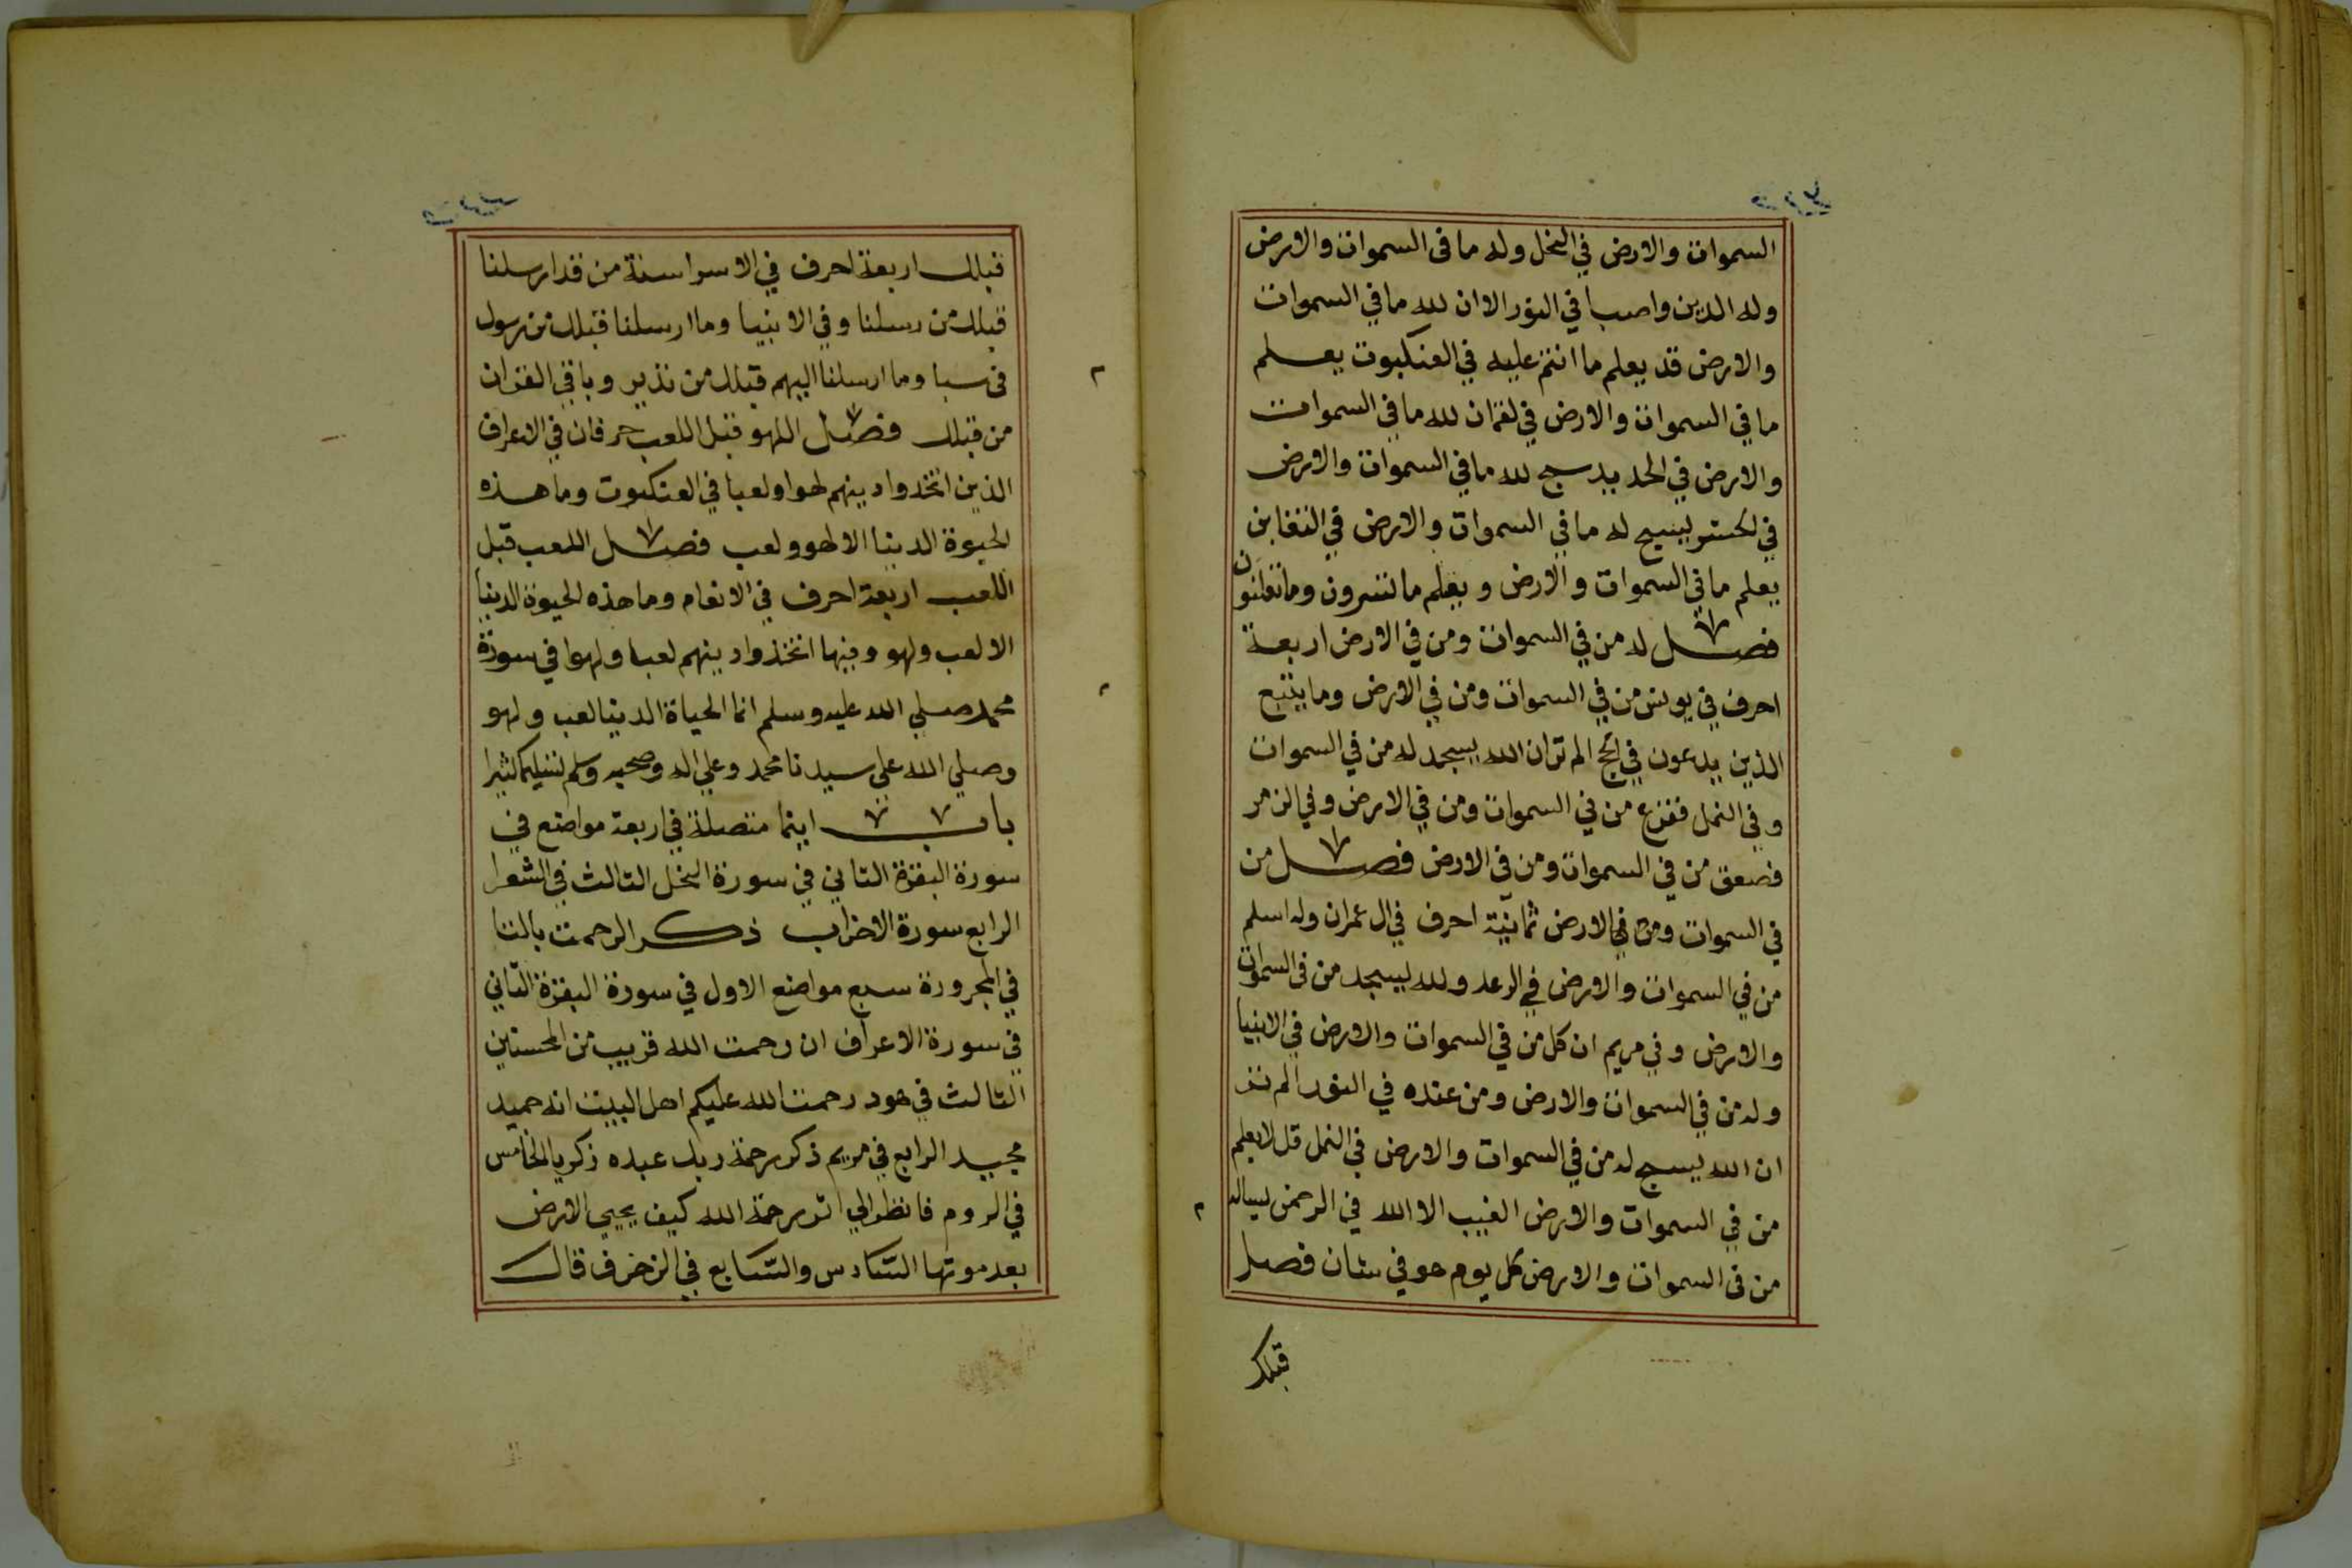 السموات والارض في النحل وله ما فى السموات والارض
وله الدين واصبا في النور الا ان لله ما في السموات
والارض قد يعلم ما انتم عليه في العنكبوت يعلم
ما في السموات والارض في لقمان لله ما في السموات
والارض في الحديد سبح لله ما في السموات والارض
في الحشر يسبح له ما في السموات والارض في التغابن
يعلم ما في السموات والارض ويعلم ما تسرون وما تعلنون
فصل له من في السموات ومن في الارض اربعة
احرف في يونس من في السموات ومن في الارض وما يتبع
الذين يدعون في الحج الم تر ان الله يسجد له من في السموات
وفي النمل ففزع من في السموات ومن في الارض وفي الزمر
فصعق من في السموات ومن في الارض فصل من
في السموات ومن في الارض ثمانية احرف في ال عمران وله اسلم
من في السموات والارض في الرعد ولله يسجد من فى السموات
والارض وفي مريم ان كل من في السموات والارض في الانبيا
وله من في السموات والارض ومن عنده في النور الم تر
ان الله يسبح له من في السموات والارض في النمل قل لا يعلم
من في السموات والارض الغيب الا الله في الرحمن يساله
من فى السموات والارض كل يوم هو في شان فصل
قبلك
قبلك اربعة احرف في الاسرا سنة من قد ارسلنا
قبلك من رسلنا وفي الانبيا وما ارسلنا قبلك من رسول
فى سبا وما ارسلنا اليهم قبلك من نذير وباقي القران
من قبلك فصل اللهو قبل اللعب حرفان في الاعراف
الذين اتخذوا دينهم لهوا ولعبا في العنكبوت وما هذه
الحيوة الدنيا الا لهو ولعب فصل اللعب قبل
اللعب اربعة احرف في الانعام وما هذه الحيوة الدنيا
الا لعب ولهو وفيها اتخذوا دينهم لعبا ولهوا في سورة
محمد صلي الله عليه وسلم انما الحياة الدنيا لعب ولهو
وصلي الله علي سيدنا محمد وعلي اله وصحبه وسلم تسليما كثيرا
باب اينما متصلة في اربعة مواضع في
سورة البقرة الثاني في سورة النحل الثالث في الشعرا
الرابع سورة الاحزاب ذكر الرحمت بالتا
في المجرورة سبع مواضع الاول في سورة البقرة الثاني
في سورة الاعراف ان رحمت الله قريب من المحسنين
الثالث في هود رحمت الله عليكم اهل البيت انه حميد
مجيد الرابع في مريم ذكر رحمة ربك عبده زكريا الخامس
في الروم فانظر الي اثر رحمة الله كيف يحيي الارض
بعد موتها السادس والسابع في الزخرف قال